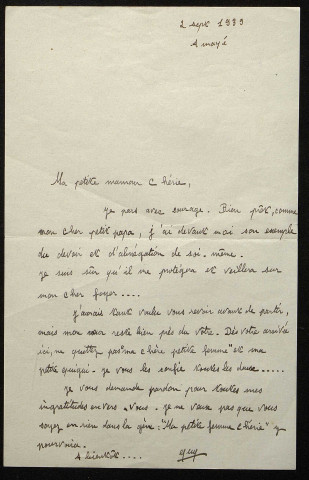 2 sept 1939
Ma petite maman chérie,
je pars avec courage. Bien prêt, comme
mon cher petit papa, j'ai devant moi son exemple
du devoir et d'abnégation de soi-même.
je suis sûr qu'il me protègera et veillera sur
mon cher foyer....
j'aurais tant voulu vous revoir avant de partir,
mais mon cœur reste bien près du vôtre. Dès votre arrivée
ici, ne quittez pas "ma chère petite femme" et ma
petite quiqui. je vous les confie toutes les deux.....
je vous demande pardon pour toutes mes
ingratitudes envers vous. je ne veux pas que vous
soyez en rien dans la gêne: "Ma petite femme chérie" y
pourvoira.
A bientôt....
guy